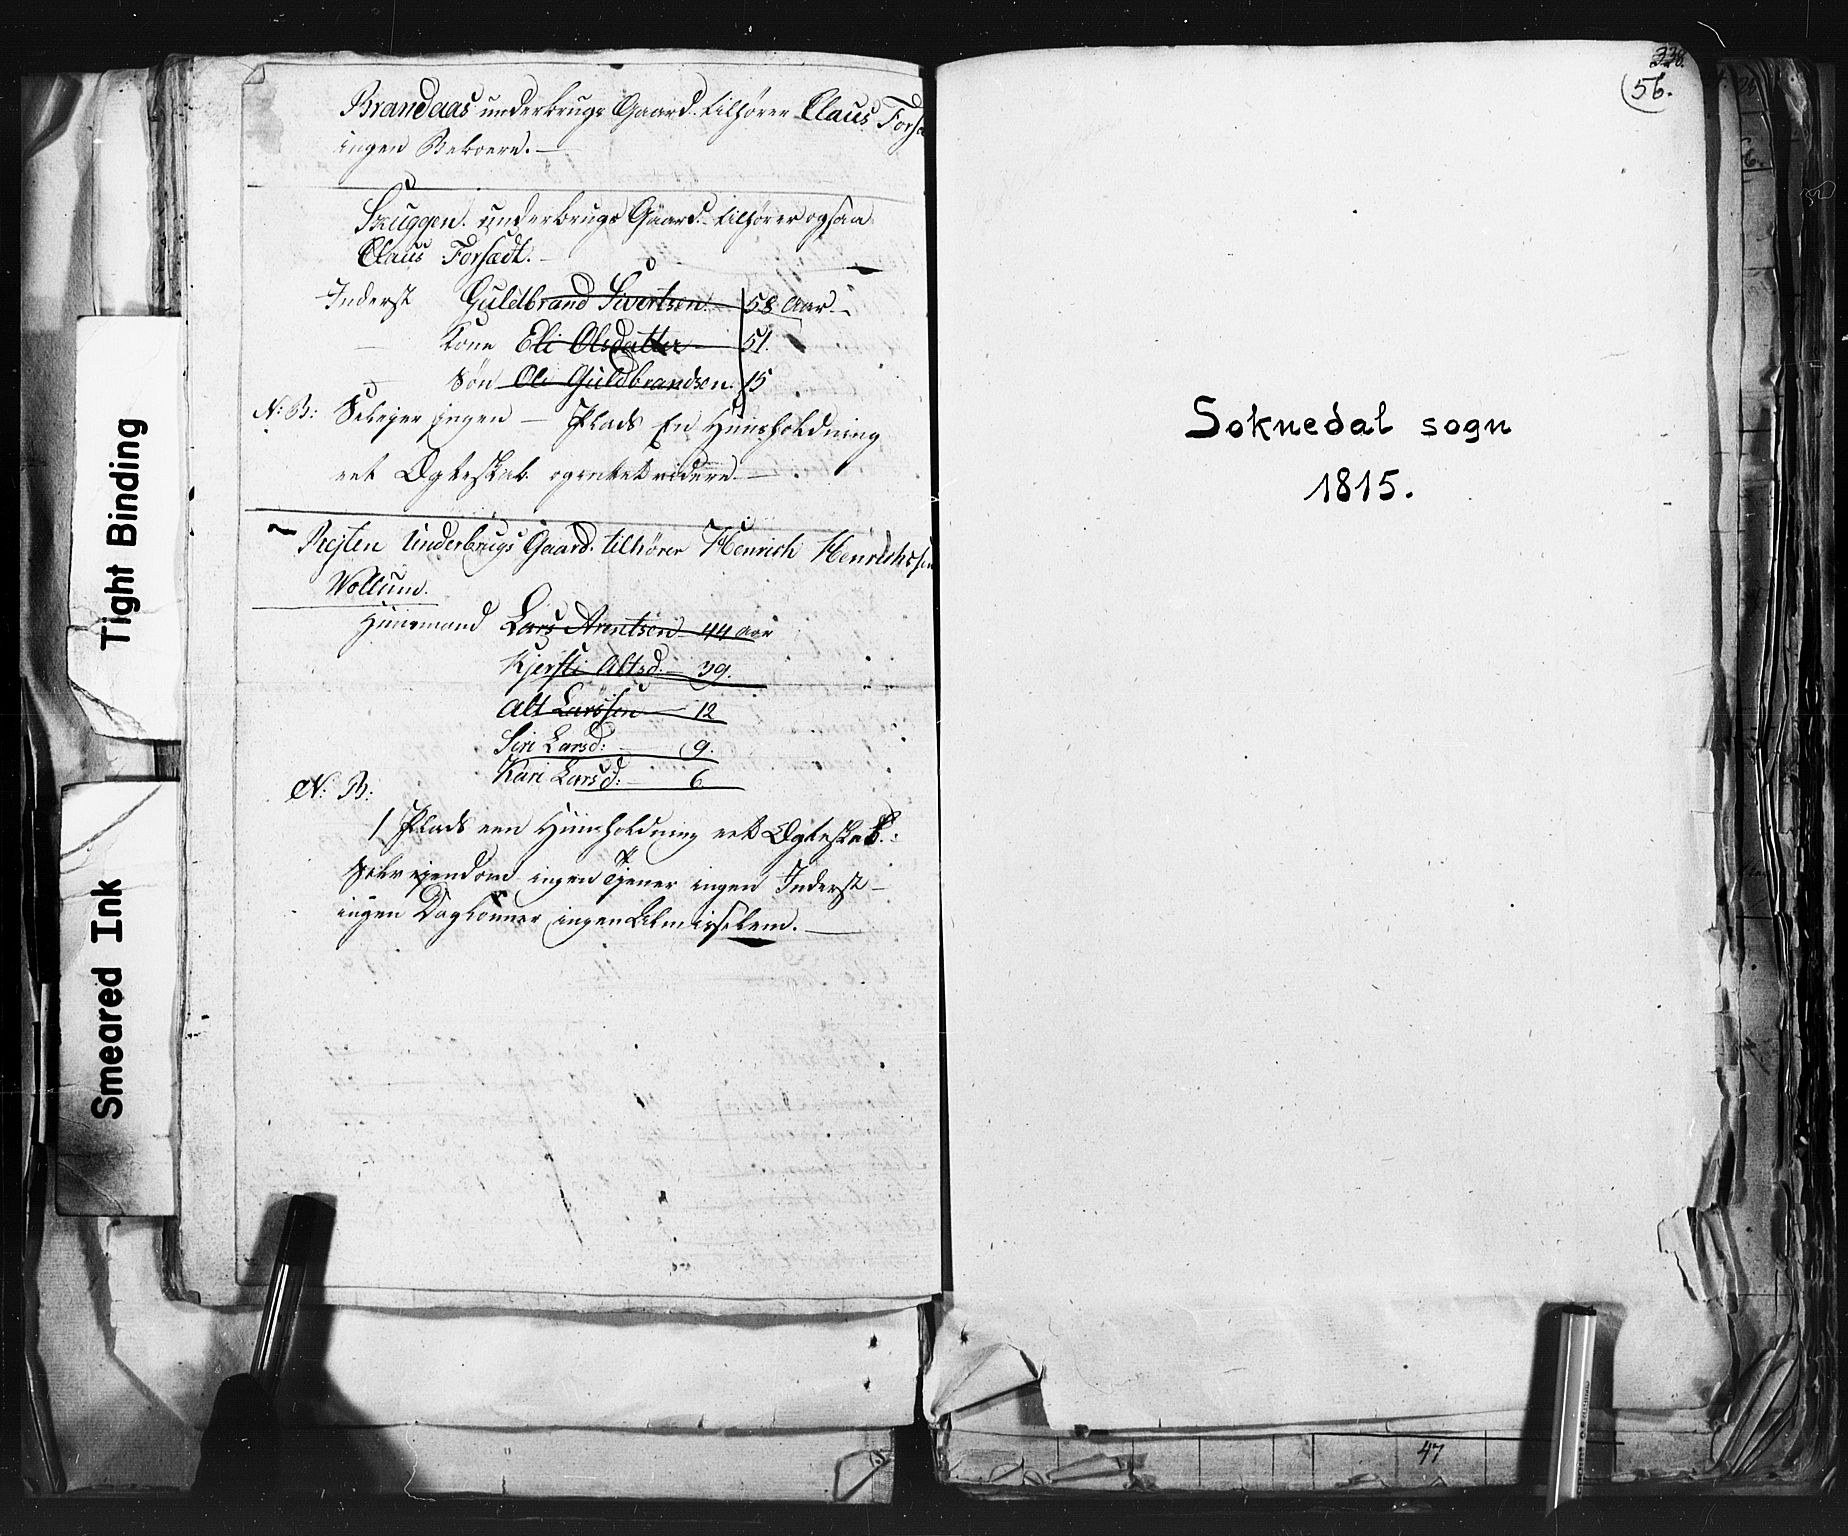 Brandaas underbrugs Gaard. tilhører Claus Forsæ
ingen Beboere. —
Skuggen. underbrugs Gaard. tilhører ogsaa
Claus Forsædt. —
Inderst Guldbrand Sivertsen. 58 Aar. —
— Kone Eli Olsdatter — 51.
— Søn Ole Guldbrandsen. 15
N: B: Seleyer ingen — Plads En Huusholdning
eet Ægteskab. og videre —
Rejten Underbrugs Gaard. tilhører Henrich Henrichssen
Wollum.
Huusmand Lars Arntsen — 44 aar
Kjersti Altsd. — 39.
Alt Larssen — 12
Siri Larsd: — 9.
Kari Larsd: — 6
N: B:
1 Plads een Huusholdning eet Ægteskab.:
ingen Tjener ingen Inderst —
ingen Daglønner ingen Almisselem. —
Tight Binding
Smeared Ink
56.
Soknedal sogn
1815.
47